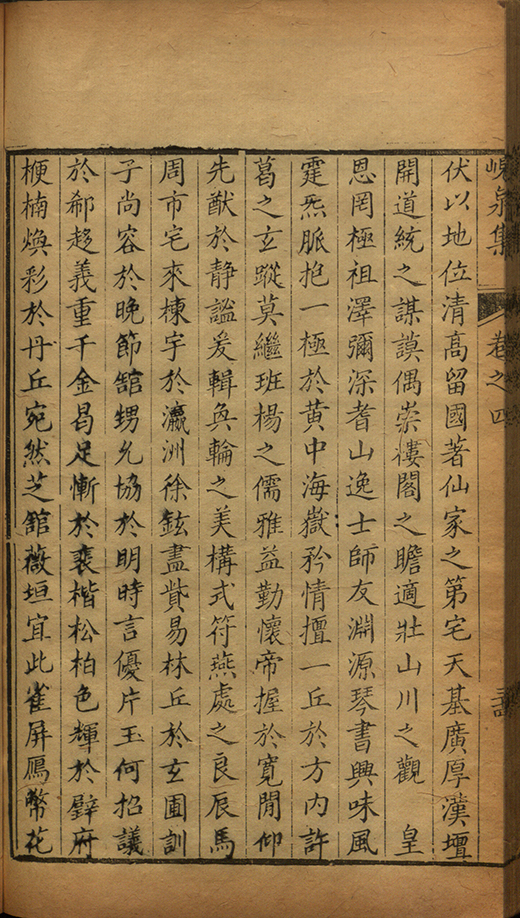 峴泉集 卷之四
伏以地位清高留國著仙家之第宅天基廣厚漢壇
開道統之謀謨偶崇樓閣之瞻適壯山川之觀 皇
恩罔極祖澤彌深耆山逸士師友淵源琴書興味風
霆炁脈抱一極於黄中海嶽矜情擅一丘於方内許
葛之玄蹤莫繼班楊之儒雅益勤懷帝握於寬閒仰
先猷於静謐爰輯奐輪之美構式符燕處之良辰馬
周市宅來棟宇於瀛洲徐鉉盡貲易林丘於玄圃訓
子尚容於晚節舘甥允協於明時言優片玉何招議
於郗趍義重千金曷足慚於裴楷松柏色輝於壁府
楩楠煥彩於丹丘宛然芝舘薇垣宜此雀屏鴈幣花